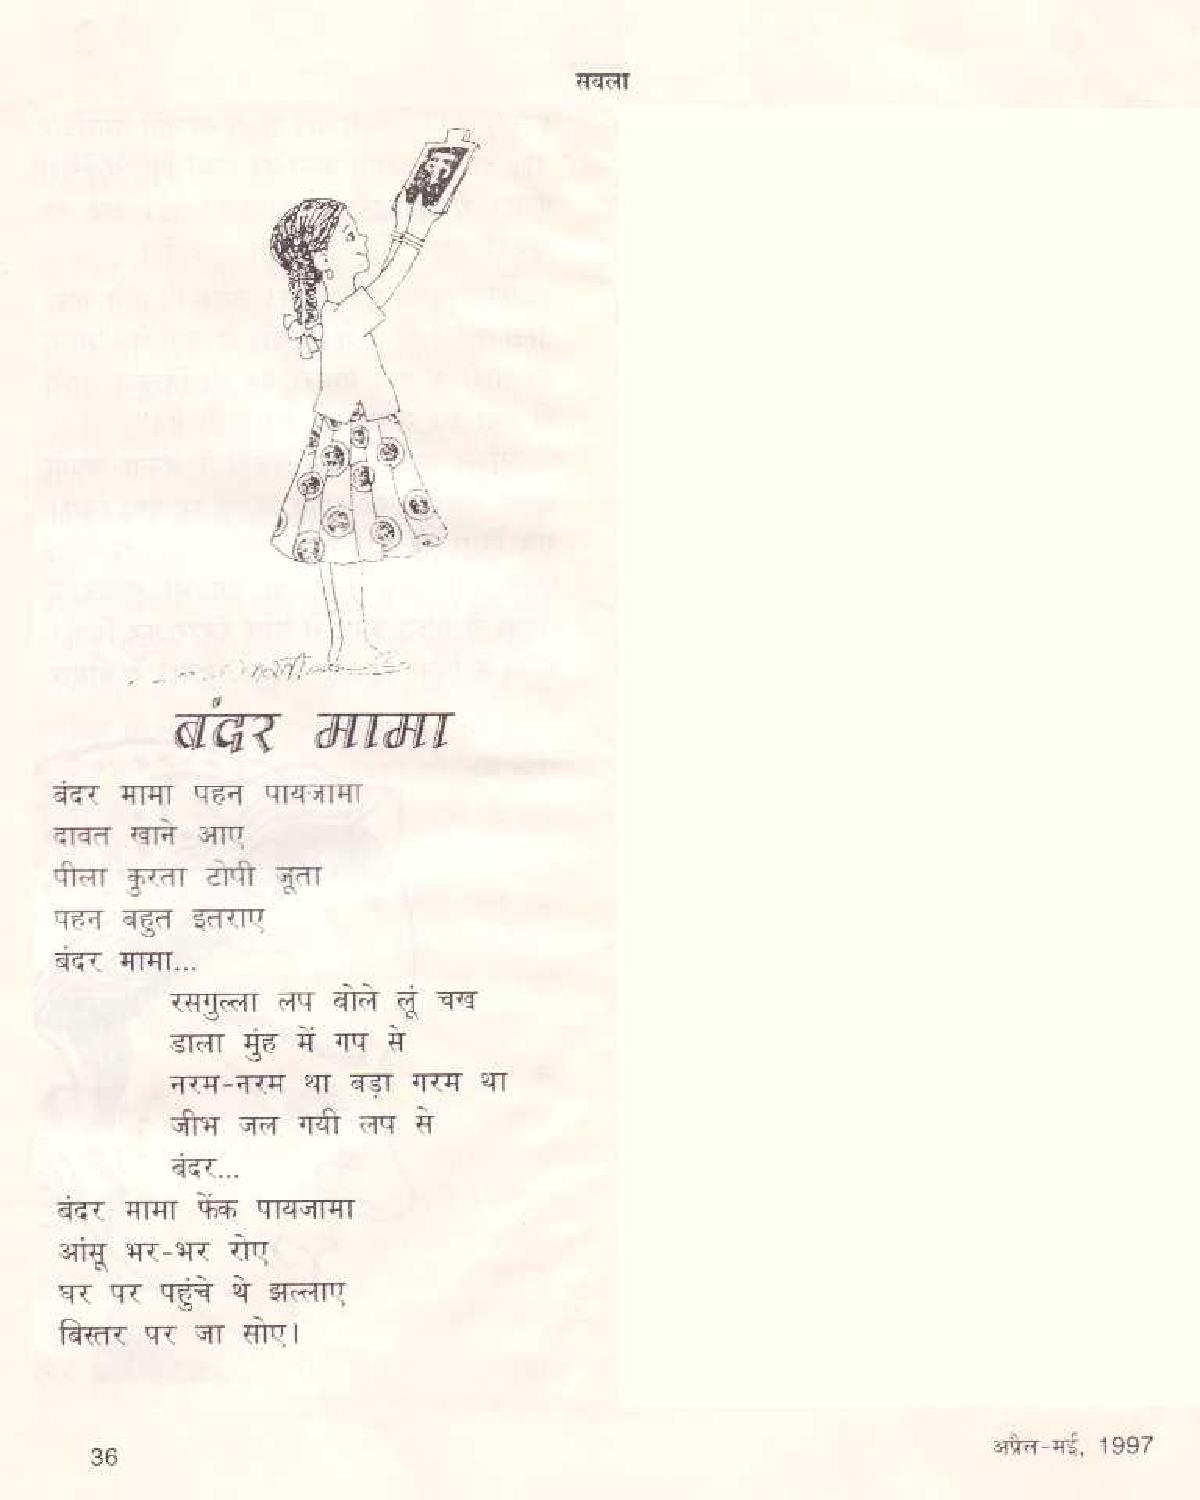 सबला
क
बंदर मामा
बंदर मामा पहन पायजामा
दावत खाने आए
पीला कुरता टोपी जूता
पहन बहुत इतराए
बंदर मामा...
रसगुल्ला लप बोले लूं चख
डाला मुंह में गप से
नरम-नरम था बड़ा गरम था
जीभ जल गयी लप से
बंदर...
बंदर मामा फेंक पायजामा
आंसू भर-भर रोए
घर पर पहुंचे थे झल्लाए
बिस्तर पर जा सोए।
36
अप्रैल-मई, 1997